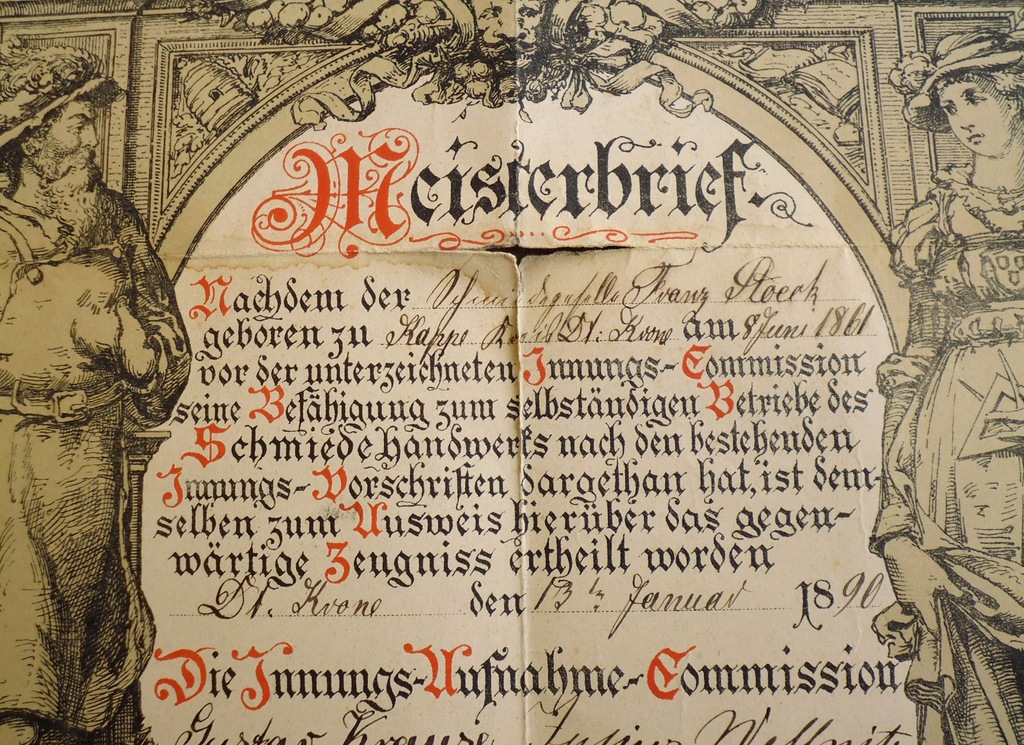 Meisterbrief.
Nachdem der Schmiedegeselle Franz Stoeck
geboren zu Kappe Kreis Dt. Krone am 8 Juni 1861
vor der unterzeichneten Innungs-Commission
seine Befähigung zum selbständigen Betriebe des
Schmiedehandwerks nach den bestehenden
Innungs-Vorschriften dargethan hat, ist dem-
selben zum Ausweis hierüber das gegen-
wärtige Zeugniss ertheilt worden
Dt. Krone den 13ten Januar 1890
Die Innungs-Aufnahme-Commission
Gustav Krause Julius